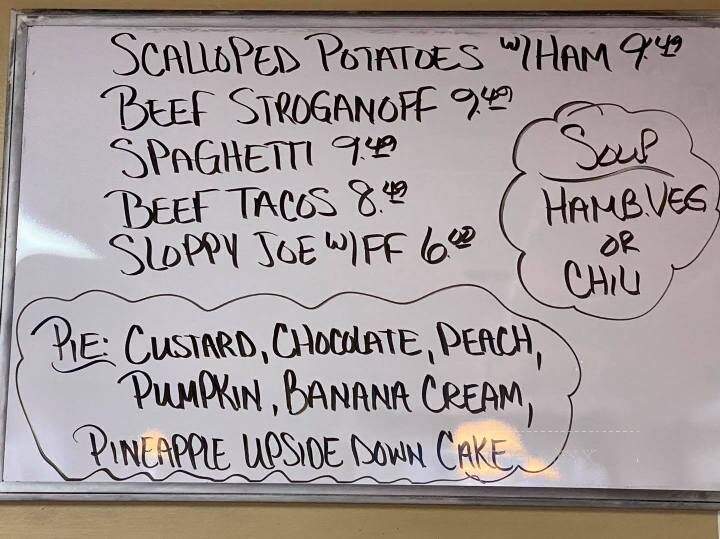 SCALLOPED POTATOES W/HAM 9.49
BEEF STROGANOFF 9.49
SPAGHETTI 9.49
BEEF TACOS 8.49
SLOPPY JOE W/FF 6.00
SOUP
HAMB.VEG
OR
CHILI
PIE: CUSTARD, CHOCOLATE, PEACH,
PUMPKIN, BANANA CREAM,
PINEAPPLE UPSIDE DOWN CAKE